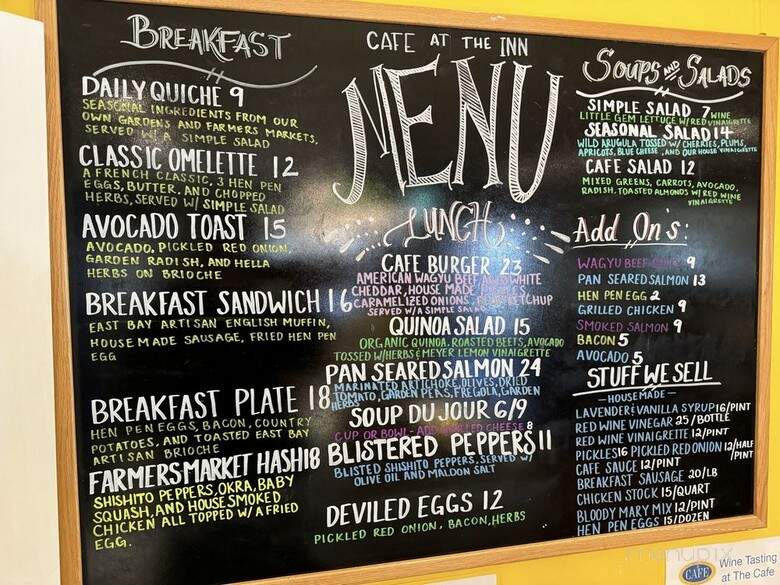 BREAKFAST
DAILY QUICHE 9
SEASONAL INGREDIENTS FROM OUR
OWN GARDENS AND FARMERS MARKETS,
SERVED W/ A SIMPLE SALAD
CLASSIC OMELETTE 12
A FRENCH CLASSIC, 3 HEN PEN
EGGS, BUTTER, AND CHOPPED
HERBS, SERVED W/ SIMPLE SALAD
AVOCADO TOAST 15
AVOCADO, PICKLED RED ONION,
GARDEN RADISH, AND HELLA
HERBS ON BRIOCHE
BREAKFAST SANDWICH 16
EAST BAY ARTISAN ENGLISH MUFFIN,
HOUSE MADE SAUSAGE, FRIED HEN PEN
EGG
BREAKFAST PLATE 18
HEN PEN EGGS, BACON, COUNTRY
POTATOES, AND TOASTED EAST BAY
ARTISAN BRIOCHE
FARMERS MARKET HASH 18
SHISHITO PEPPERS, OKRA, BABY
SQUASH, AND HOUSE SMOKED
CHICKEN ALL TOPPED W/ A FRIED
EGG.
CAFE AT THE INN
MENU
LUNCH
CAFE BURGER 23
AMERICAN WAGYU BEEF, WHITE
CHEDDAR, HOUSE MADE
CARAMELIZED ONIONS, KETCHUP
SERVED W/ A SIMPLE SALAD
QUINOA SALAD 15
ORGANIC QUINOA, ROASTED BEETS, AVOCADO
TOSSED W/ HERBS & MEYER LEMON VINAIGRETTE
PAN SEARED SALMON 24
MARINATED ARTICHOKE, OLIVES, DRIED
TOMATO, GARDEN PEAS, FREGOLA, GARDEN
HERBS
SOUP DU JOUR 6/9
CUP OR BOWL - ADD GRILLED CHEESE 8
BLISTERED PEPPERS 11
BLISTED SHISHITO PEPPERS, SERVED W/
OLIVE OIL AND MALDON SALT
DEVILED EGGS 12
PICKLED RED ONION, BACON, HERBS
SOUPS AND SALADS
SIMPLE SALAD 7
LITTLE GEM LETTUCE W/ RED WINE VINAIGRETTE
SEASONAL SALAD 14
WILD ARUGULA TOSSED W/ CHERRIES, PLUMS,
APRICOTS, BLUE CHEESE, AND OUR HOUSE VINAIGRETTE
CAFE SALAD 12
MIXED GREENS, CARROTS, AVOCADO,
RADISH, TOASTED ALMONDS W/ RED WINE
VINAIGRETTE
Add On's:
WAGYU BEEF 9
PAN SEARED SALMON 13
HEN PEN EGG 2
GRILLED CHICKEN 9
SMOKED SALMON 9
BACON 5
AVOCADO 5
STUFF WE SELL
- HOUSE MADE -
LAVENDER & VANILLA SYRUP 16/PINT
RED WINE VINEGAR 25/BOTTLE
RED WINE VINAIGRETTE 12/PINT
PICKLES 16 PICKLED RED ONION 12/HALF/PINT
CAFE SAUCE 12/PINT
BREAKFAST SAUSAGE 20/LB
CHICKEN STOCK 15/QUART
BLOODY MARY MIX 12/PINT
HEN PEN EGGS 15/DOZEN
CAFE
Wine Tasting
at The Cafe